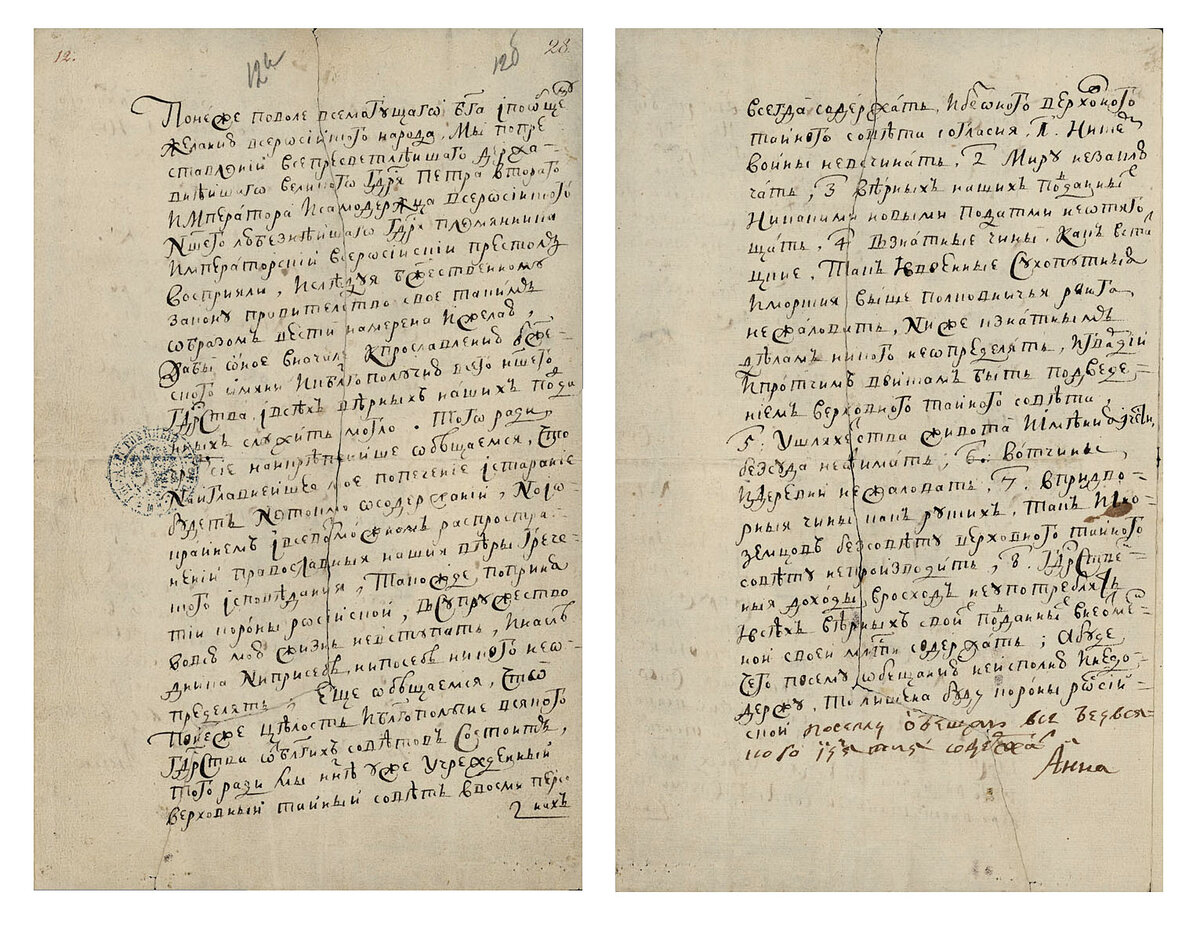 12.
12а
12б
28
Понеже поволе всемогущаго бга ꙇпоѡбще
желанию всероссииского народа, Мы попре
ставлениі всепресветлѣйшаго держа-
внѣйшаго великого Гдря Петра Второго
Императора Исамодержца всероссиского
Ншего любезнѣйшаго Гдря племянника
Императорскиі всероссискиі престолъ
восприяли, Ислѣдуя бжественному
закону правителство свое такимъ
образомъ вести намерена Ижелаю,
дабы ѡное вначале Кпрославлению бже-
ского имяни Икблгополучию всего ншего
Гдрства, ꙇвсѣхъ вѣрныхъ нашихъ подда
ныхъ служить могло. Того ради,
чрезъ сие наикрѣпчайше ѡбѣщаемся, что
Наиглавнейшее мое попечение ꙇстарание
будетъ Нетокмо ѡсодержаниі,Ноіѡ
крайнемъ ꙇвсевозможномъ распростра-
нениі православныя нашия вѣры Грече-
ского ꙇсповѣдания, Такожде, поприня
тиі короны росиской, Всупружество
вовсю мою жизнь невступать, Инаслѣ
дника Ниприсебѣ, нипосебѣ никого неѡ-
пределять, Еще ѡбѣщаемся, что
Понеже цѣлость Иблгополучие всякого
Гдрства ѿблгихъ совѣтовъ Состоитъ,
того ради мы ннѣ уже Учрежденный
верховный тайный совѣтъ ввосми персо-
нахъ
всегда содержать, Ибезоного верховного
тайного совѣта согласия, 1. Нискем
войны невсчинать, 2 Миру незаклю
чать, 3 Вѣрныхъ нашихъ подданныхъ
Никакими новыми податми неотяго
щать, 4 Взнатные чины, Какъ встат
цкие, Такъ Ивоенные Сухопутныя
Иморския выше полковничья ранга
нежаловать, Ниже кзнатнымъ
дѣламъ никого неѡпределять, Игвардиі
Ипротчимъ войскамъ быть подведе-
ниемъ верховного тайного совѣта,
5. Ушляхетства живота Иимѣния Ичести,
безсуда неѿимать, 6. Вотчины
Идеревни нежаловать, 7. Впридво-
рныя чины какъ рускихъ, Такъ Ино-
земцовъ безсовѣту верховного тайного
совѣту непроизводить, 8. Гдрстве-
ныя доходы, вросходъ неупотреблять
Ивсѣхъ вѣрныхъ своих подданных внеотме-
ной своей млсти содержать; Абуде
чего посему ѡбещанию неисполню Инедо-
держу, То лишена буду короны росий-
ской посему обещаюс все безвся-
кого изятия содержат
Анна